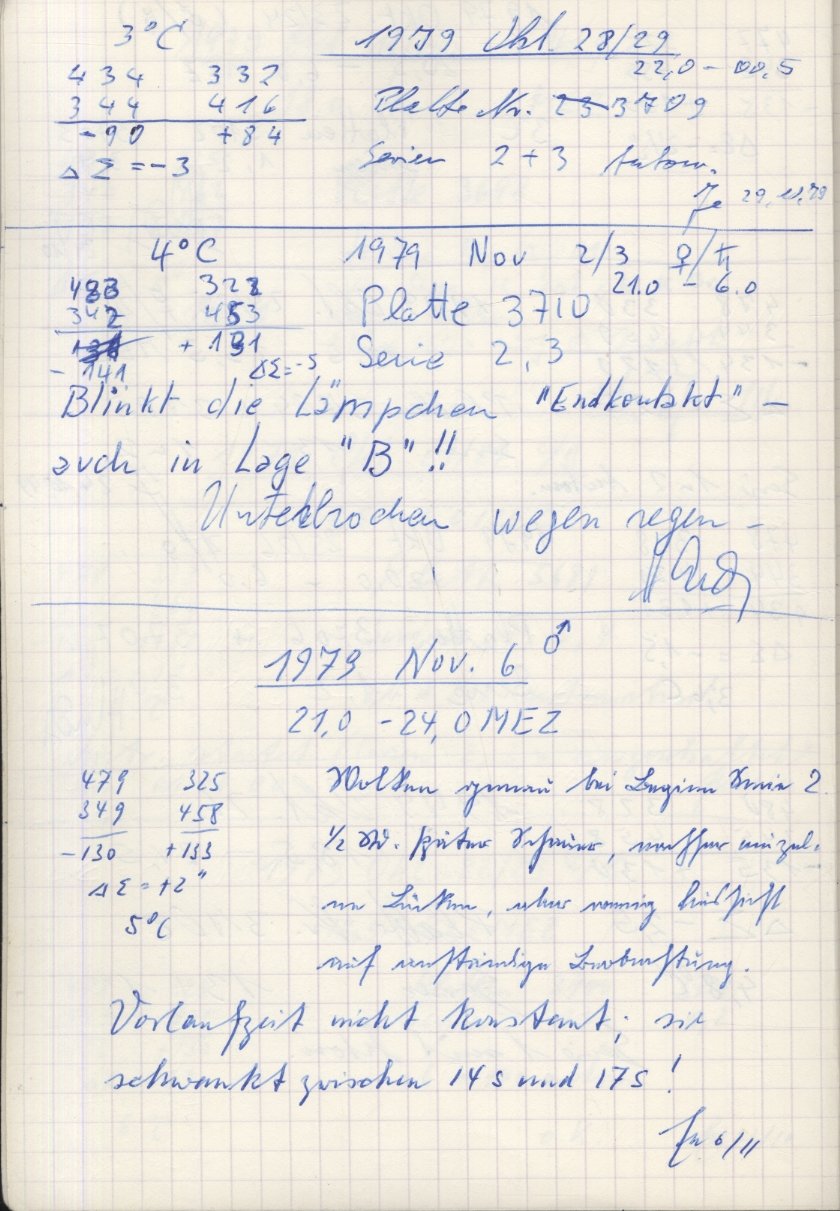 3°C 1979 Okt. 28/29
22,0 – 00,5
434 332
344 416 Platte Nr. 3709
-90 +84
Δ Σ = -3 Serien 2+3 Autom.
29.10.79
4°C 1979 Nov 2/3 ♀/♄
483 328 21.0 – 6.0
342 453 Platte 3710
+131 Serie 2,3
-141 ΔΣ=-5
Blinkt die Lämpchen "Endkontakt" –
auch in Lage "B"!!
Unterbrochen wegen regen –
1979 Nov. 6 ♂
21,0 – 24,0 MEZ
479 325 Wolken genau bei Beginn Serie 2.
349 458 ½ Std. später Schauer, nachher einzel-
-130 +133
Δ Σ = +2" ne Lücken, aber wenig Aussicht
5°C
auf anständige Beobachtung.
Vorlaufzeit nicht konstant; sie
schwankt zwischen 14s und 17s!
6/11